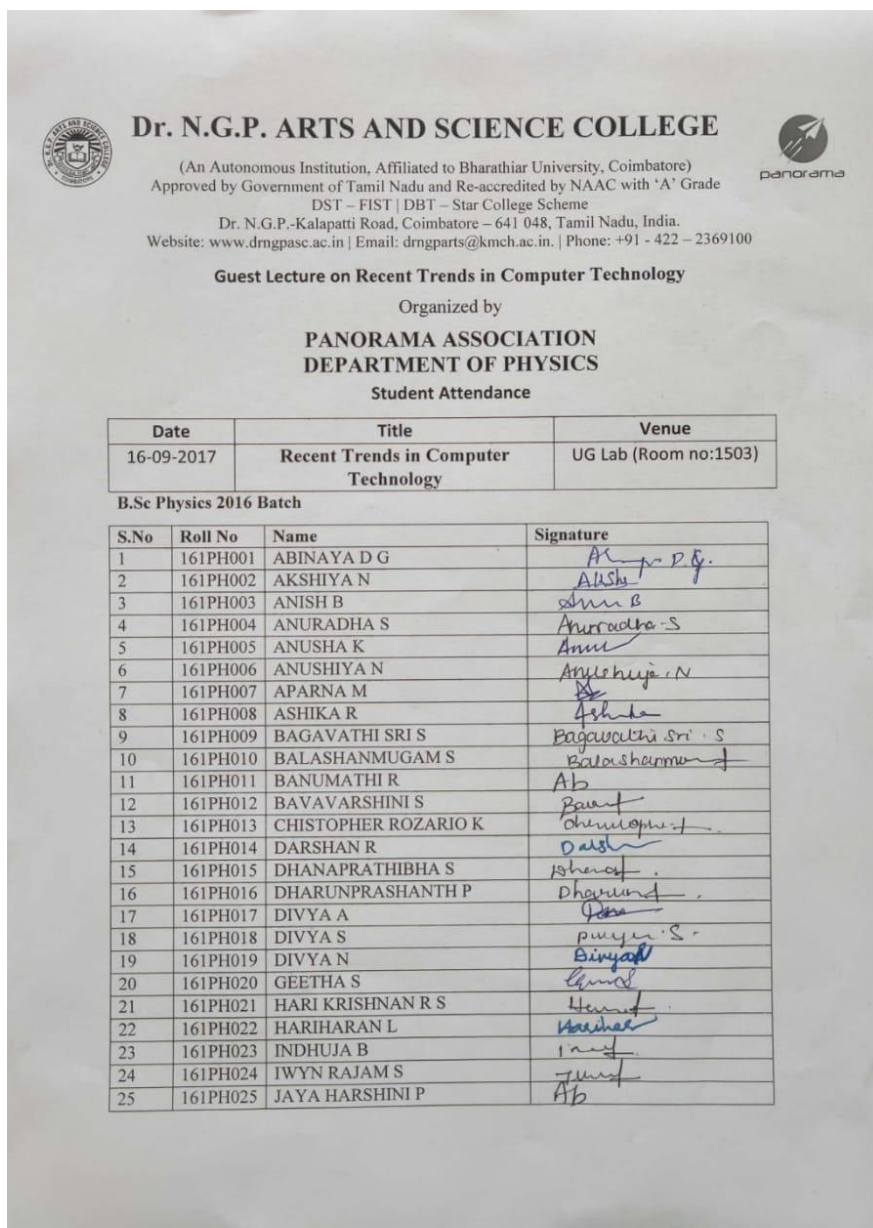 Dr. N.G.P. ARTS AND SCIENCE COLLEGE
(An Autonomous Institution, Affiliated to Bharathiar University, Coimbatore)
Approved by Government of Tamil Nadu and Re-accredited by NAAC with ‘A’ Grade
DST – FIST | DBT – Star College Scheme
Dr. N.G.P.-Kalapatti Road, Coimbatore – 641 048, Tamil Nadu, India.
Website: www.drngpasc.ac.in | Email: drngparts@kmch.ac.in. | Phone: +91 - 422 – 2369100
panorama
Guest Lecture on Recent Trends in Computer Technology
Organized by
PANORAMA ASSOCIATION
DEPARTMENT OF PHYSICS
Student Attendance
Date Title Venue
16-09-2017 Recent Trends in Computer UG Lab (Room no:1503)
Technology
B.Sc Physics 2016 Batch
S.No Roll No Name Signature
1 161PH001 ABINAYA D G D.G.
2 161PH002 AKSHIYA N
3 161PH003 ANISH B
4 161PH004 ANURADHA S Anuradha-S
5 161PH005 ANUSHA K
6 161PH006 ANUSHIYA N Anushuya.N
7 161PH007 APARNA M
8 161PH008 ASHIKA R
9 161PH009 BAGAVATHI SRI S Bagavathi Sri . S
10 161PH010 BALASHANMUGAM S
11 161PH011 BANUMATHI R Ab
12 161PH012 BAVAVARSHINI S
13 161PH013 CHISTOPHER ROZARIO K
14 161PH014 DARSHAN R Darsh
15 161PH015 DHANAPRATHIBHA S
16 161PH016 DHARUNPRASHANTH P
17 161PH017 DIVYA A
18 161PH018 DIVYA S
19 161PH019 DIVYA N DivyaN
20 161PH020 GEETHA S
21 161PH021 HARI KRISHNAN R S
22 161PH022 HARIHARAN L Harihar
23 161PH023 INDHUJA B
24 161PH024 IWYN RAJAM S
25 161PH025 JAYA HARSHINI P Ab